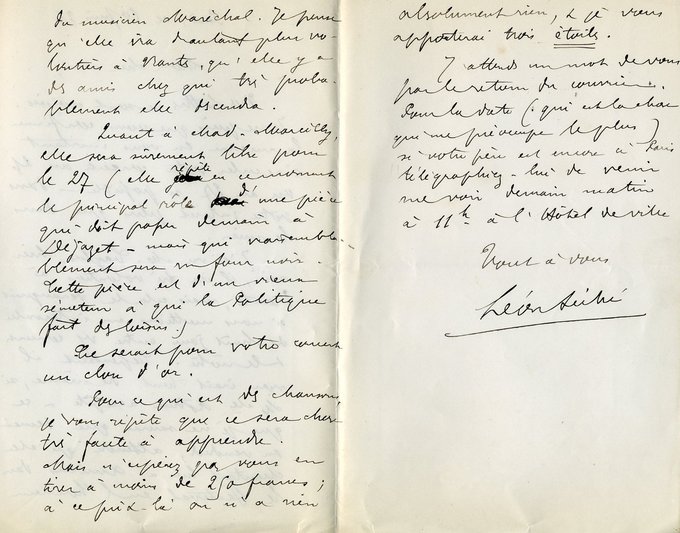 du musicien Maréchal. Je pense
qu'elle ira d'autant plus vo-
lontiers à Nantes, qu'elle y a
des amis chez qui très proba-
blement elle descendra.
Quant à Mad. Marcilly,
elle sera sûrement libre pour
le 27 (elle répète en ce moment
le principal rôle d'une pièce
qui doit passer demain à
Déjazet – mais qui vraisembla-
blement sera un four noir.
Cette pièce est d'un vieux
sénateur à qui la Politique
fait des loisirs!)
Ce serait pour votre concert
un clou d'or.
Pour ce qui est des chansons,
je vous répète que ce sera chose
très facile à apprendre.
Mais n'espérez pas vous en
tirer à moins de 250 francs;
à ce prix-là on n'a rien
absolument rien, & je vous
apporterai trois étoiles.
J'attends un mot de vous
par le retour du courrier.
Pour la date (qui est la chose
qui me préoccupe le plus)
si votre père est encore à Paris
télégraphiez-lui de venir
me voir demain matin
à 11h à l'Hôtel de ville
Tout à vous
Léon